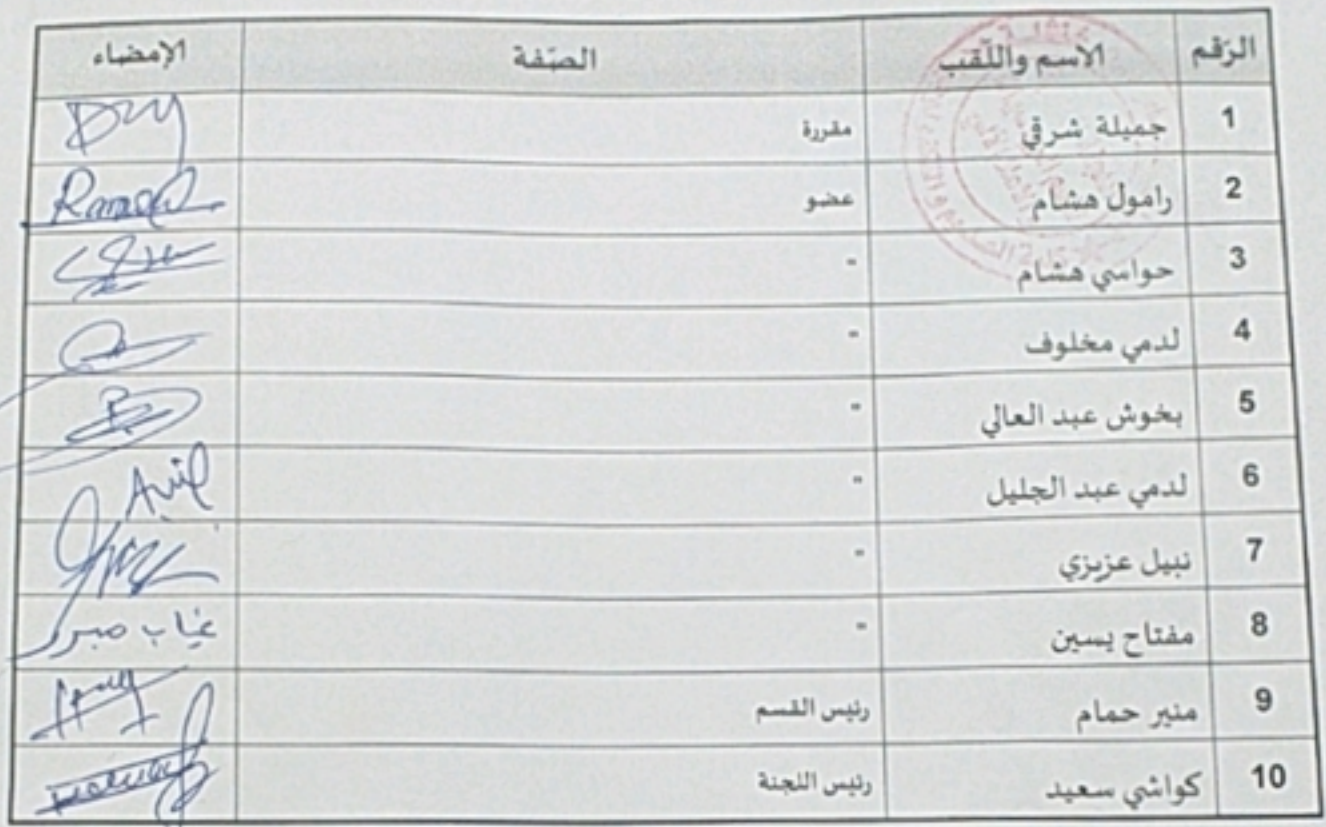 الرّقم الاسم واللّقب الصّفة الإمضاء
1 جميلة شرقي مقررة
2 رامول هشام عضو
3 حواسي هشام "
4 لدمي مخلوف "
5 بخوش عبد العالي "
6 لدمي عبد الجليل "
7 نبيل عزيزي "
8 مفتاح يسين " غياب مبرر
9 منير حمام رئيس القسم
10 كواشي سعيد رئيس اللجنة